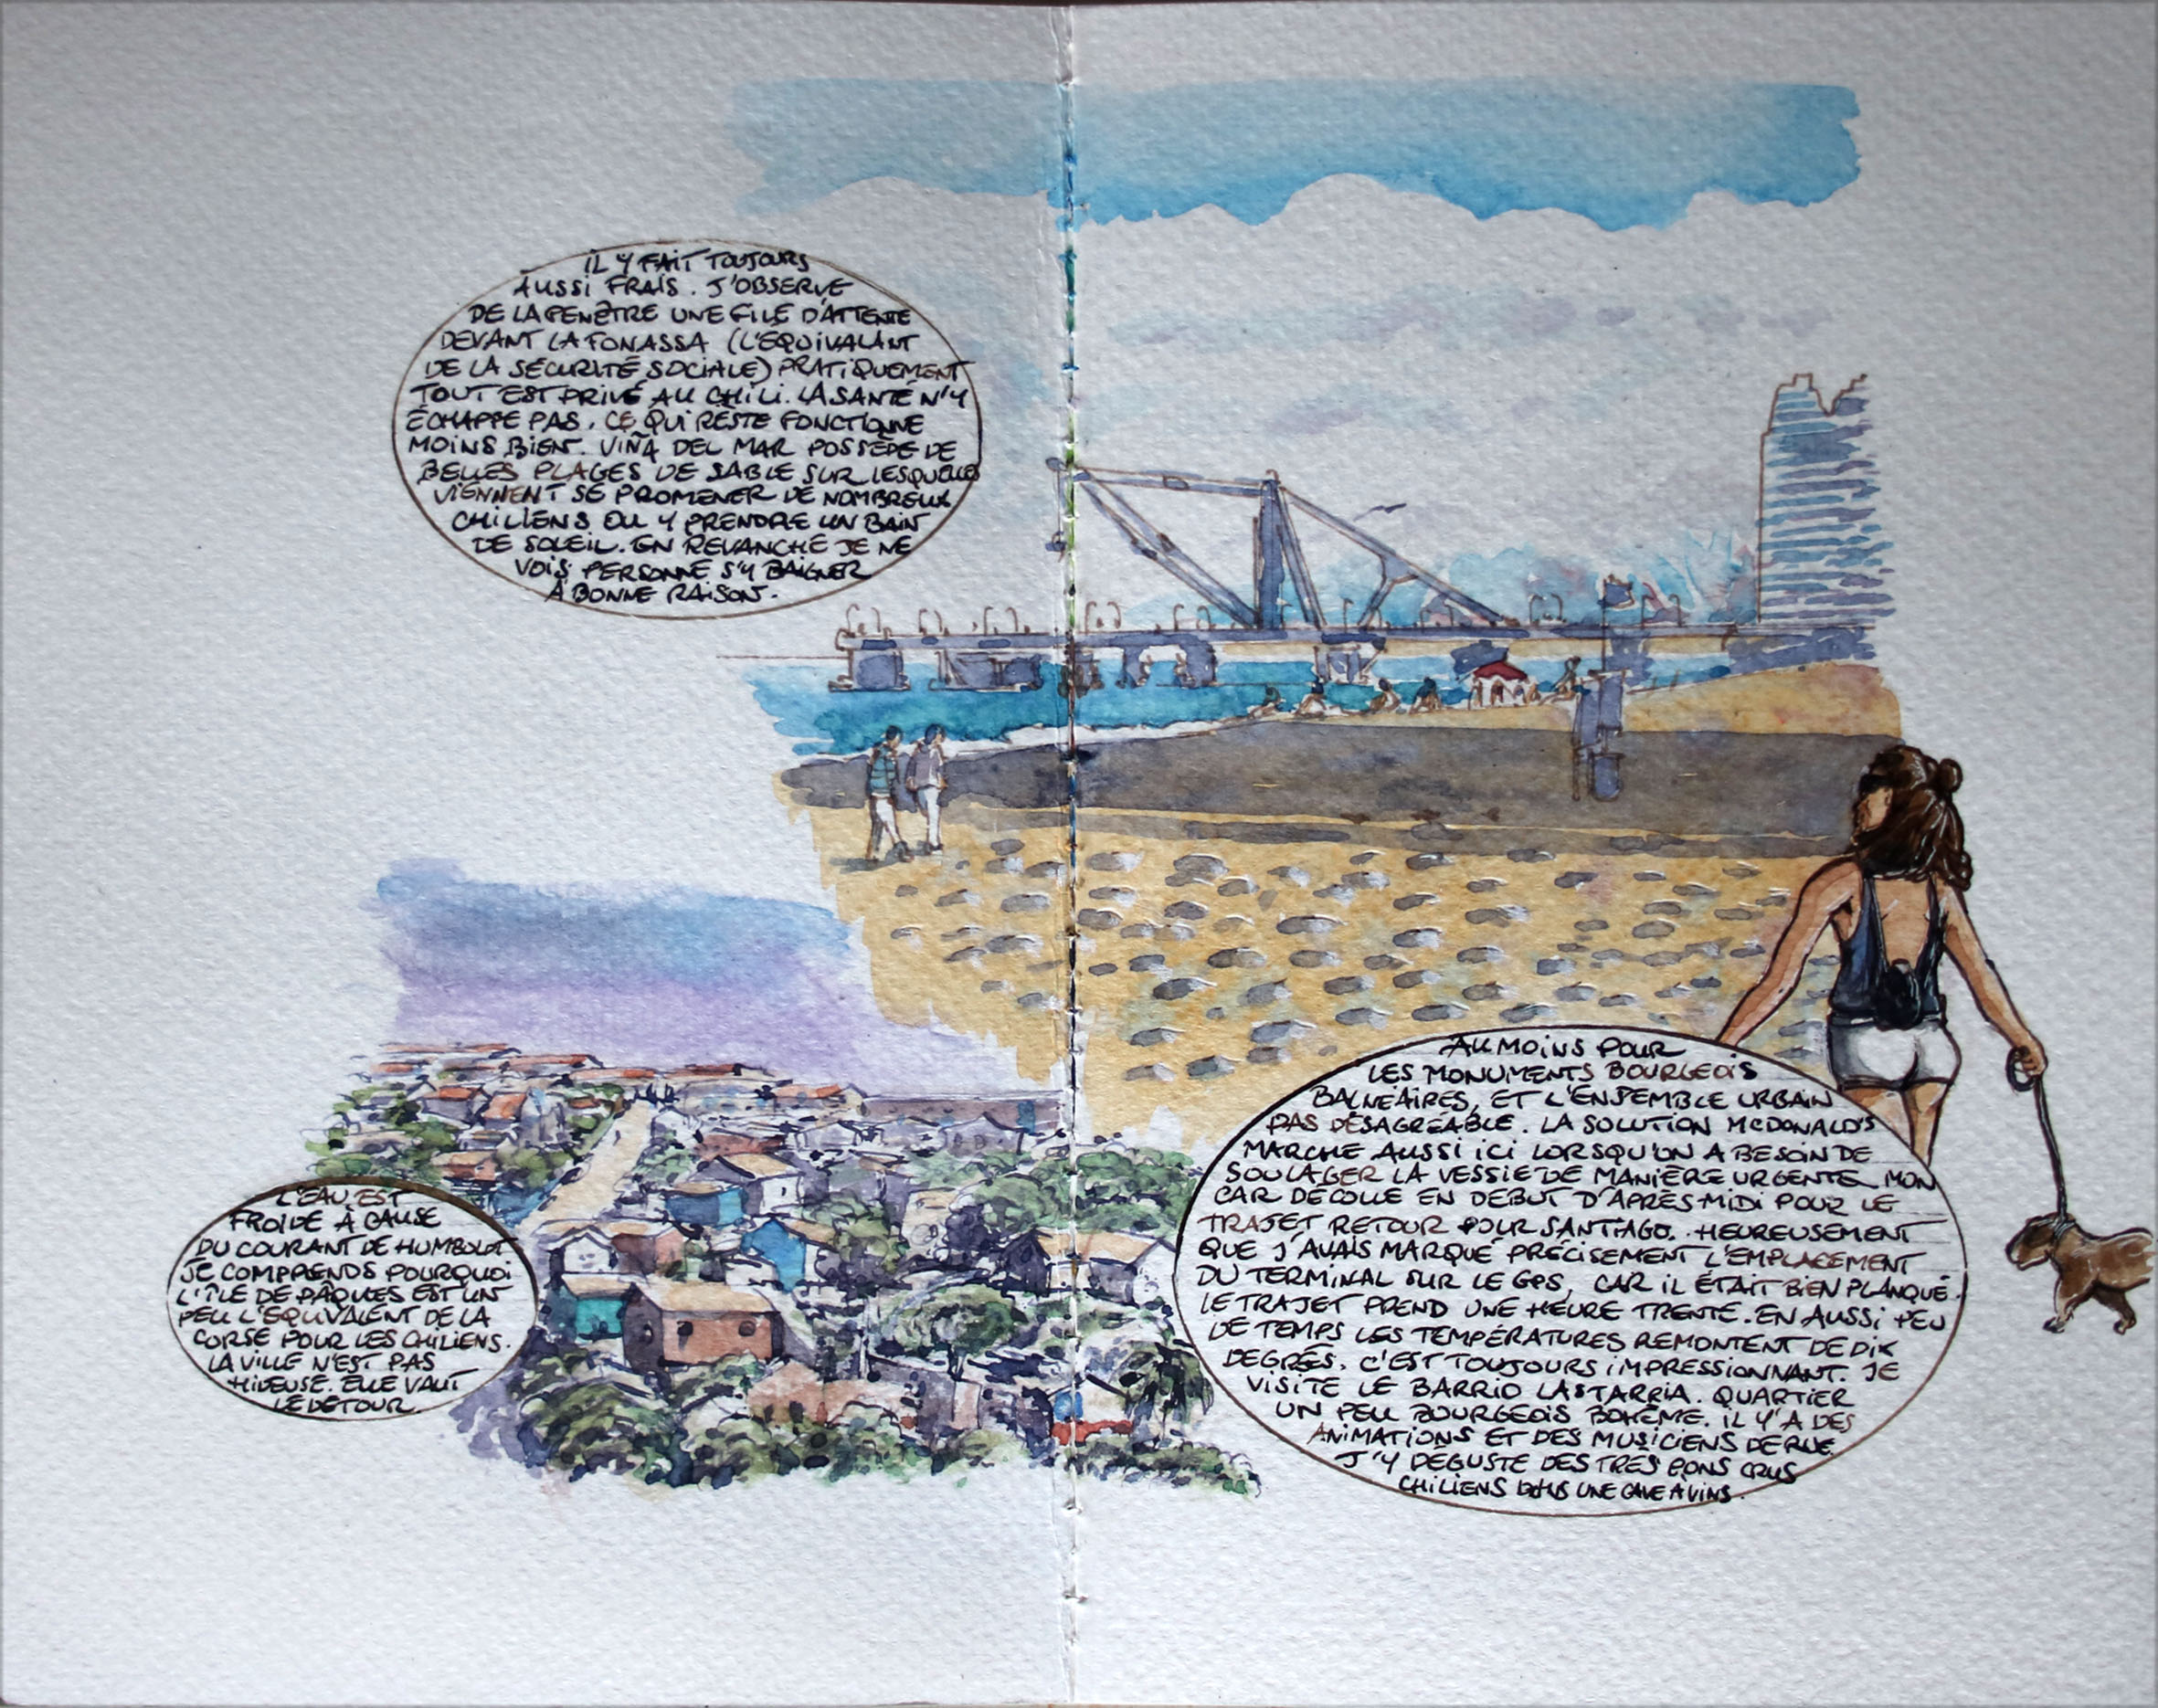 IL Y FAIT TOUJOURS
AUSSI FRAIS. J'OBSERVE
DE LA FENÊTRE UNE FILE D'ATTENTE
DEVANT LA FONASSA (L'ÉQUIVALANT
DE LA SÉCURITÉ SOCIALE) PRATIQUEMENT
TOUT EST PRIVÉ AU CHILI. LA SANTÉ N'Y
ÉCHAPPE PAS. CE QUI RESTE FONCTIONNE
MOINS BIEN. VIÑA DEL MAR POSSÈDE DE
BELLES PLAGES DE SABLE SUR LESQUELLES
VIENNENT SE PROMENER DE NOMBREUX
CHILIENS OU Y PRENDRE UN BAIN
DE SOLEIL. EN REVANCHE JE NE
VOIS PERSONNE S'Y BAIGNER
À BONNE RAISON.
L'EAU EST
FROIDE À CAUSE
DU COURANT DE HUMBOLDT
JE COMPRENDS POURQUOI
L'ÎLE DE PÂQUES EST UN
PEU L'EQUIVALENT DE LA
CORSE POUR LES CHILIENS.
LA VILLE N'EST PAS
HIDEUSE. ELLE VAUT
LE DÉTOUR.
AU MOINS POUR
LES MONUMENTS BOURGEOIS
BALNÉAIRES, ET L'ENSEMBLE URBAIN
PAS DÉSAGRÉABLE. LA SOLUTION McDONALD'S
MARCHE AUSSI ICI LORSQU'ON A BESOIN DE
SOULAGER LA VESSIE DE MANIÈRE URGENTE. MON
CAR DÉCOLLE EN DÉBUT D'APRÈS-MIDI POUR LE
TRAJET RETOUR POUR SANTIAGO. HEUREUSEMENT
QUE J'AVAIS MARQUÉ PRÉCISEMENT L'EMPLACEMENT
DU TERMINAL SUR LE GPS, CAR IL ÉTAIT BIEN PLANQUÉ.
LE TRAJET PREND UNE HEURE TRENTE. EN AUSSI PEU
DE TEMPS LES TEMPÉRATURES REMONTENT DE DIX
DEGRÉS. C'EST TOUJOURS IMPRESSIONNANT. JE
VISITE LE BARRIO LASTARRIA. QUARTIER
UN PEU BOURGEOIS BOHÈME. IL Y'A DES
ANIMATIONS ET DES MUSICIENS DE RUE.
J'Y DÉGUSTE DES TRÈS BONS CRUS
CHILIENS DANS UNE CAVE À VINS.